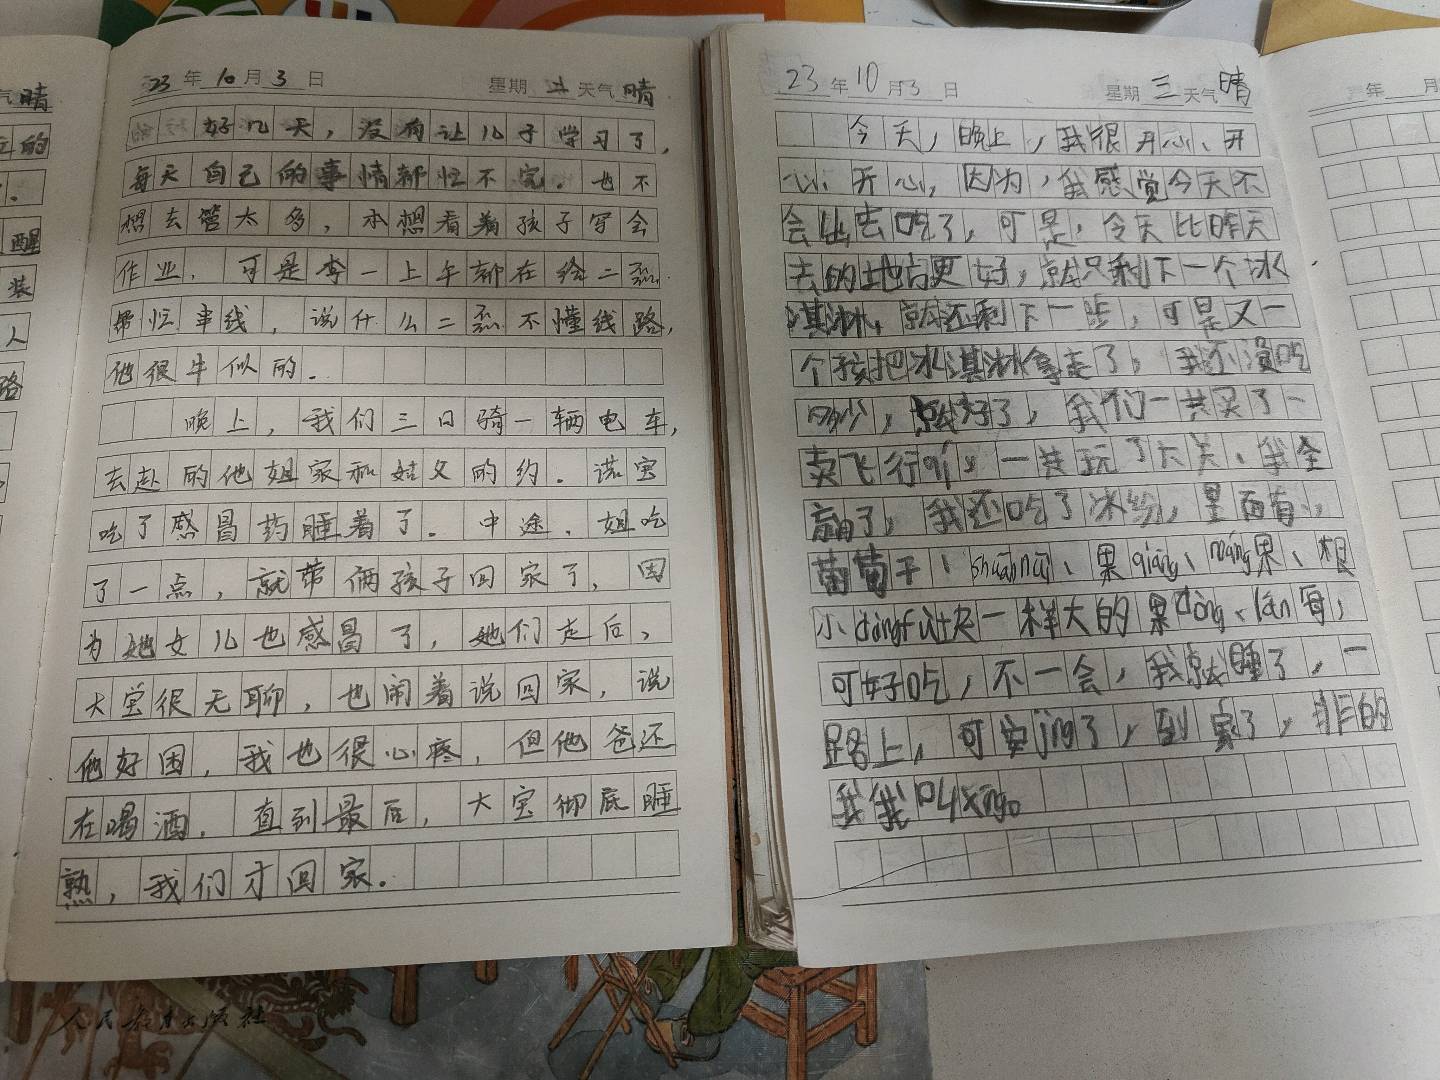 气 晴
立的
醒
装
人
路
23 年 10 月 3 日 星期 二 天气 晴
好几天，没有让儿子学习了，
每天自己的事情都忙不完。也不
想去管太多，本想看着孩子写会
作业，可是李一上午都在给二磊
帮忙串线，说什么二磊不懂线路，
他很牛似的。
晚上，我们三口骑一辆电车，
去赴的他姐家和姑父的约。诺宝
吃了感冒药睡着了。中途，姐吃
了一点，就带俩孩子回家了，因
为她女儿也感冒了，她们走后，
大宝很无聊，也闹着说回家，说
他好困，我也很心疼，但他爸还
在喝酒，直到最后，大宝彻底睡
熟，我们才回家。
23 年 10 月 3 日 星期 三 天气 晴
今天，晚上，我很开心、开
心、开心，因为，我感觉今天不
会出去吃了，可是，今天比昨天
去的地方更好，就只剩下一个冰
淇淋，就还剩下一步，可是又一
个孩把冰淇淋拿走了，我还没吃
，就好了，我们一共买了一
卖飞行qí，一共玩了六关、我全
赢了，我还吃了冰粉，里面有，
葡萄干、shuǎnnǎi、果qiāng、máng果、根
小dòngfu块一样大的果dòng、lán莓，
可好吃，不一会，我就睡了，一
路上，可安jìng了，到家了，非的
我我叫xǐng。
年 月
人民教育出版社